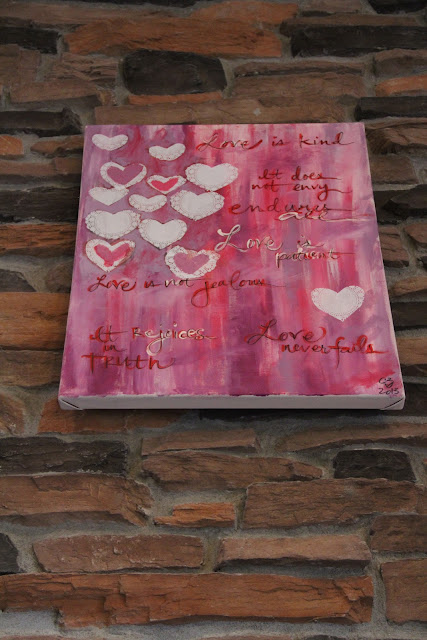 Love is kind
It does
not envy
endures
all
Love is
patient
Love is not jealous
It Rejoices
in
TRUTH
Love
never fails
2015